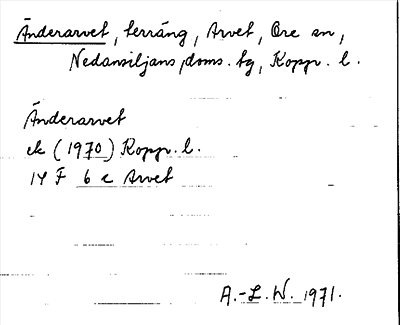 Änderarvet, terräng, Arvet, Ore sn,
Nedansiljans doms. tg, Kopp. l.
Änderarvet
ek (1970) Kopp. l.
14 F 6 e Arvet
A.-L. W. 1971.